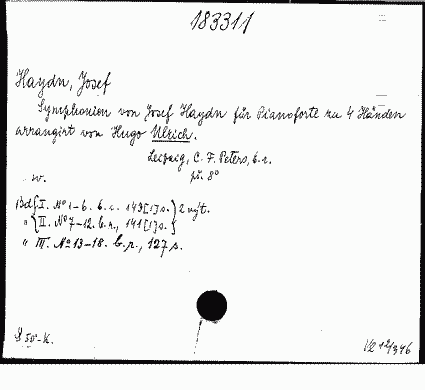 183311
Haydn, Josef
Symphonien von Josef Haydn für Pianoforte zu 4 Händen
arrangirt von Hugo Ulrich.
Leipzig, C. F. Peters, b. r.
w.
př. 8°
Bd I. No 1-6. b. r. 149[1] s.
" II. No 7-12. b. r., 141[1] s. 2 výt.
" III. No 13-18. b. r., 127 s.